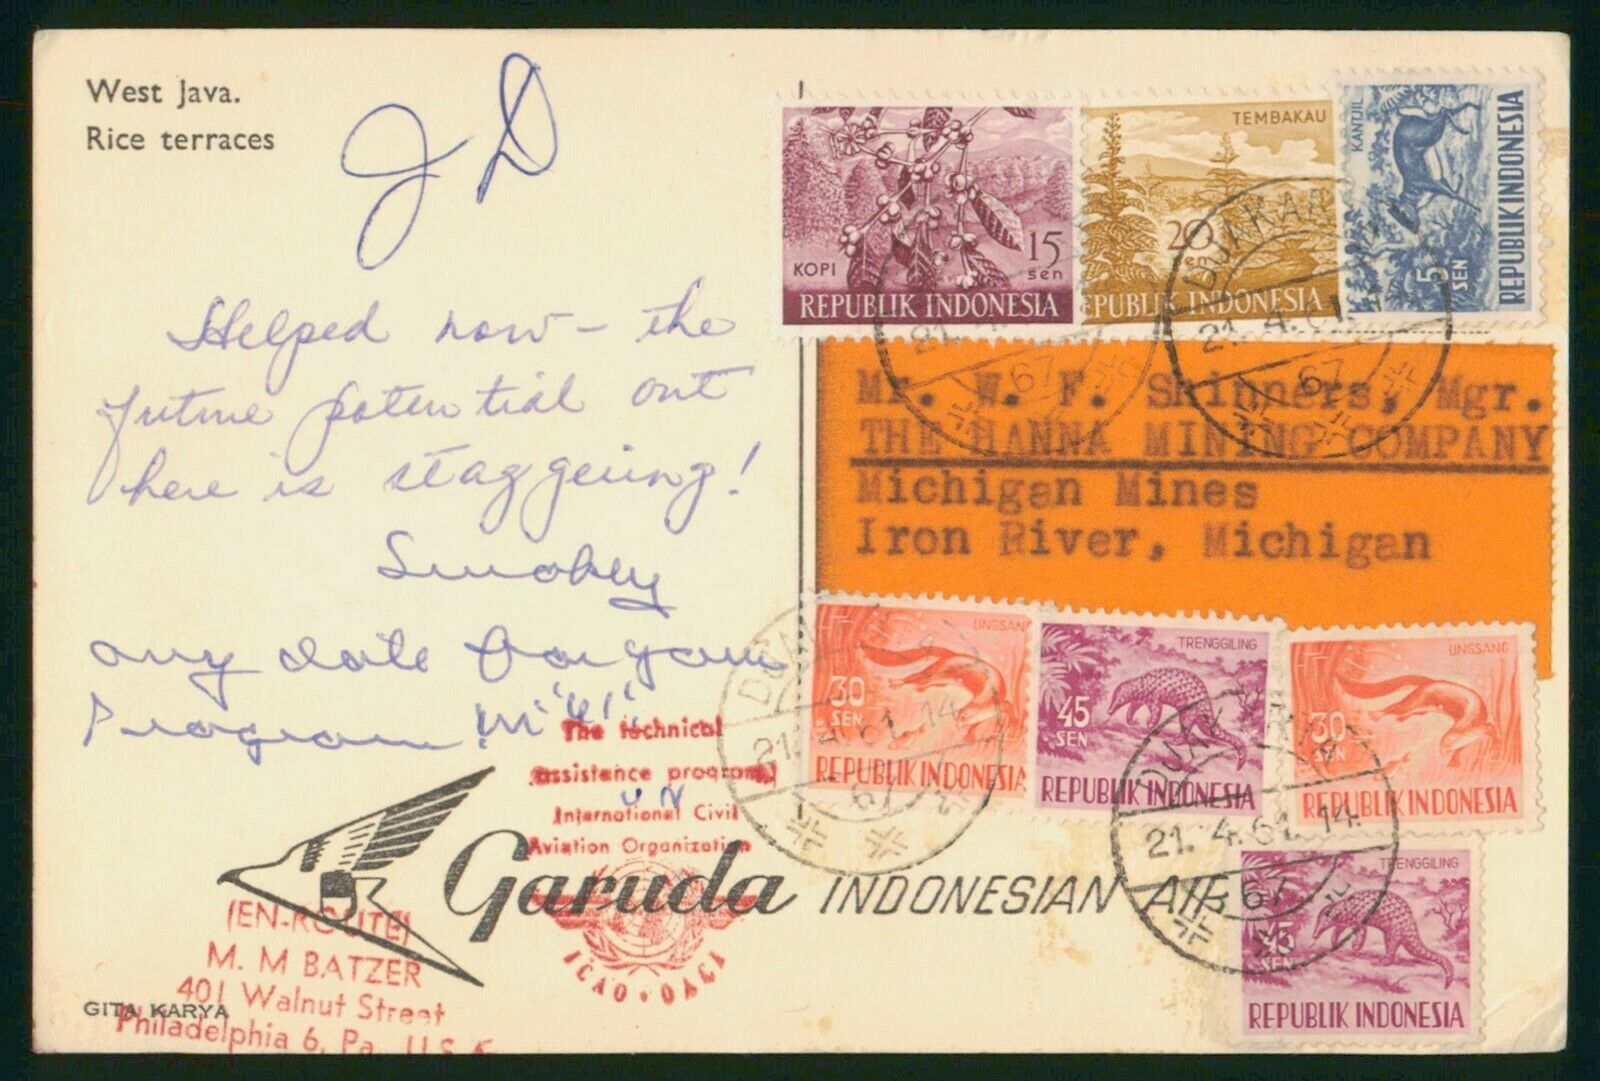 West Java.
Rice terraces
J D
Helped now – the
future potential out
here is staggering!
Smokey
any date for gam
Program in '61
KOPI
15
sen
REPUBLIK INDONESIA
TEMBAKAU
20
sen
REPUBLIK INDONESIA
KANTJIL
5
SEN
REPUBLIK INDONESIA
21. 4. 61.
67
DJAKARTA
21. 4. 61.
67
Mr. W. F. Shinners, Mgr.
THE HANNA MINING COMPANY
Michigan Mines
Iron River, Michigan
UNGSANG
30
SEN
REPUBLIK INDONESIA
TRENGGILING
45
SEN
REPUBLIK INDONESIA
UNGSANG
30
SEN
REPUBLIK INDONESIA
DJAKARTA
21. 4. 61. 14.
67
DJAKARTA
21. 4. 61. 14.
67
TRENGGILING
45
SEN
REPUBLIK INDONESIA
The technical
assistance program
U N
International Civil
Aviation Organization
ICAO · OACI
Garuda INDONESIAN AIR
(EN-ROUTE)
M. M BATZER
401 Walnut Street
Philadelphia 6, Pa. U.S.
GITA KARYA